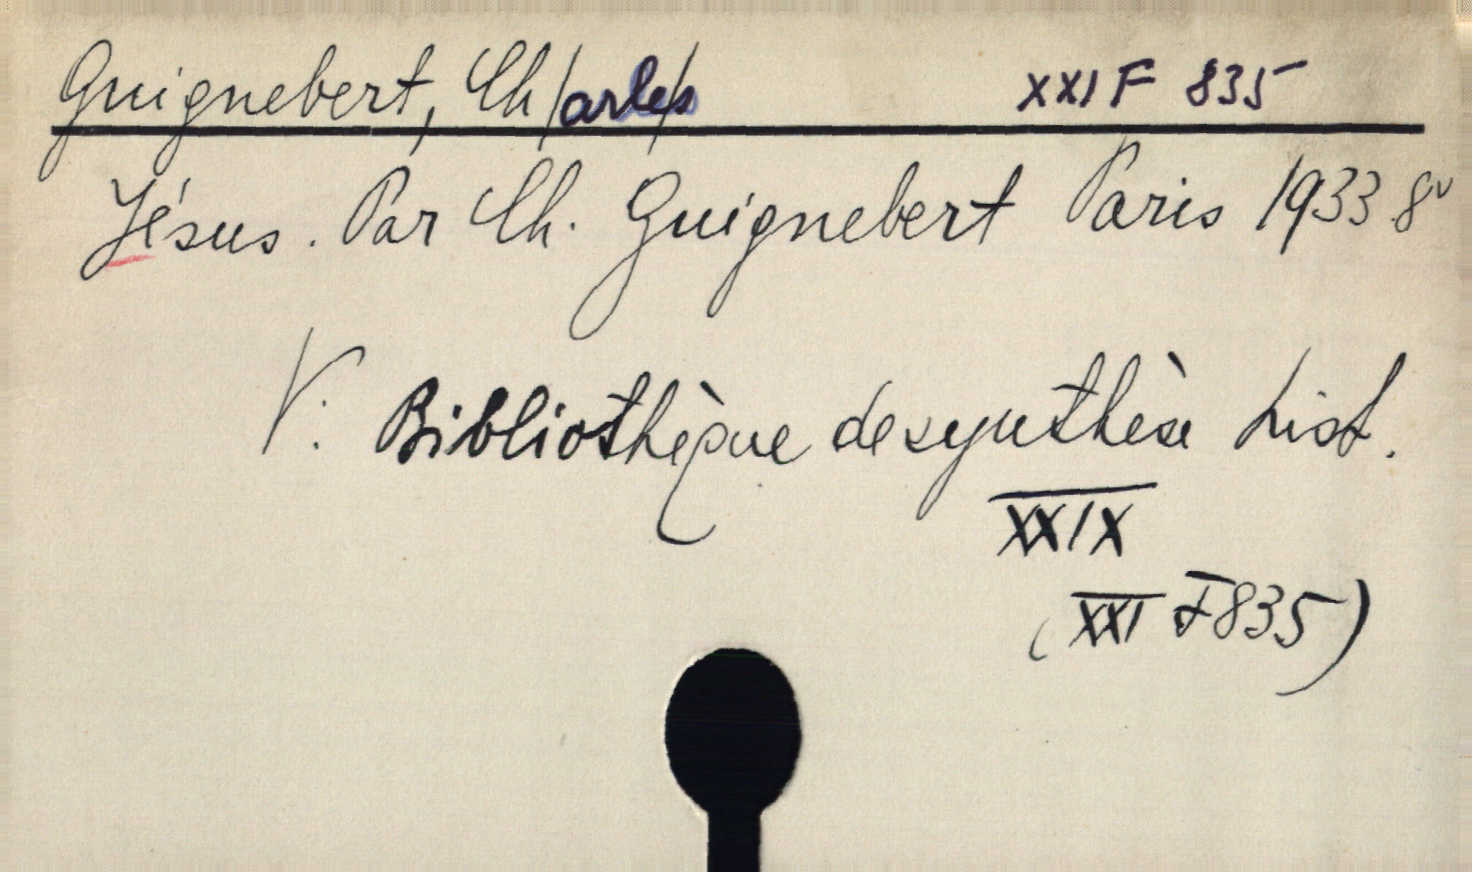 Guignebert, Ch/arles/ XXI F 835
Jésus. Par Ch. Guignebert Paris 1933 8°
V. Bibliothèque de synthèse hist.
XXIX
(XXI F 835)